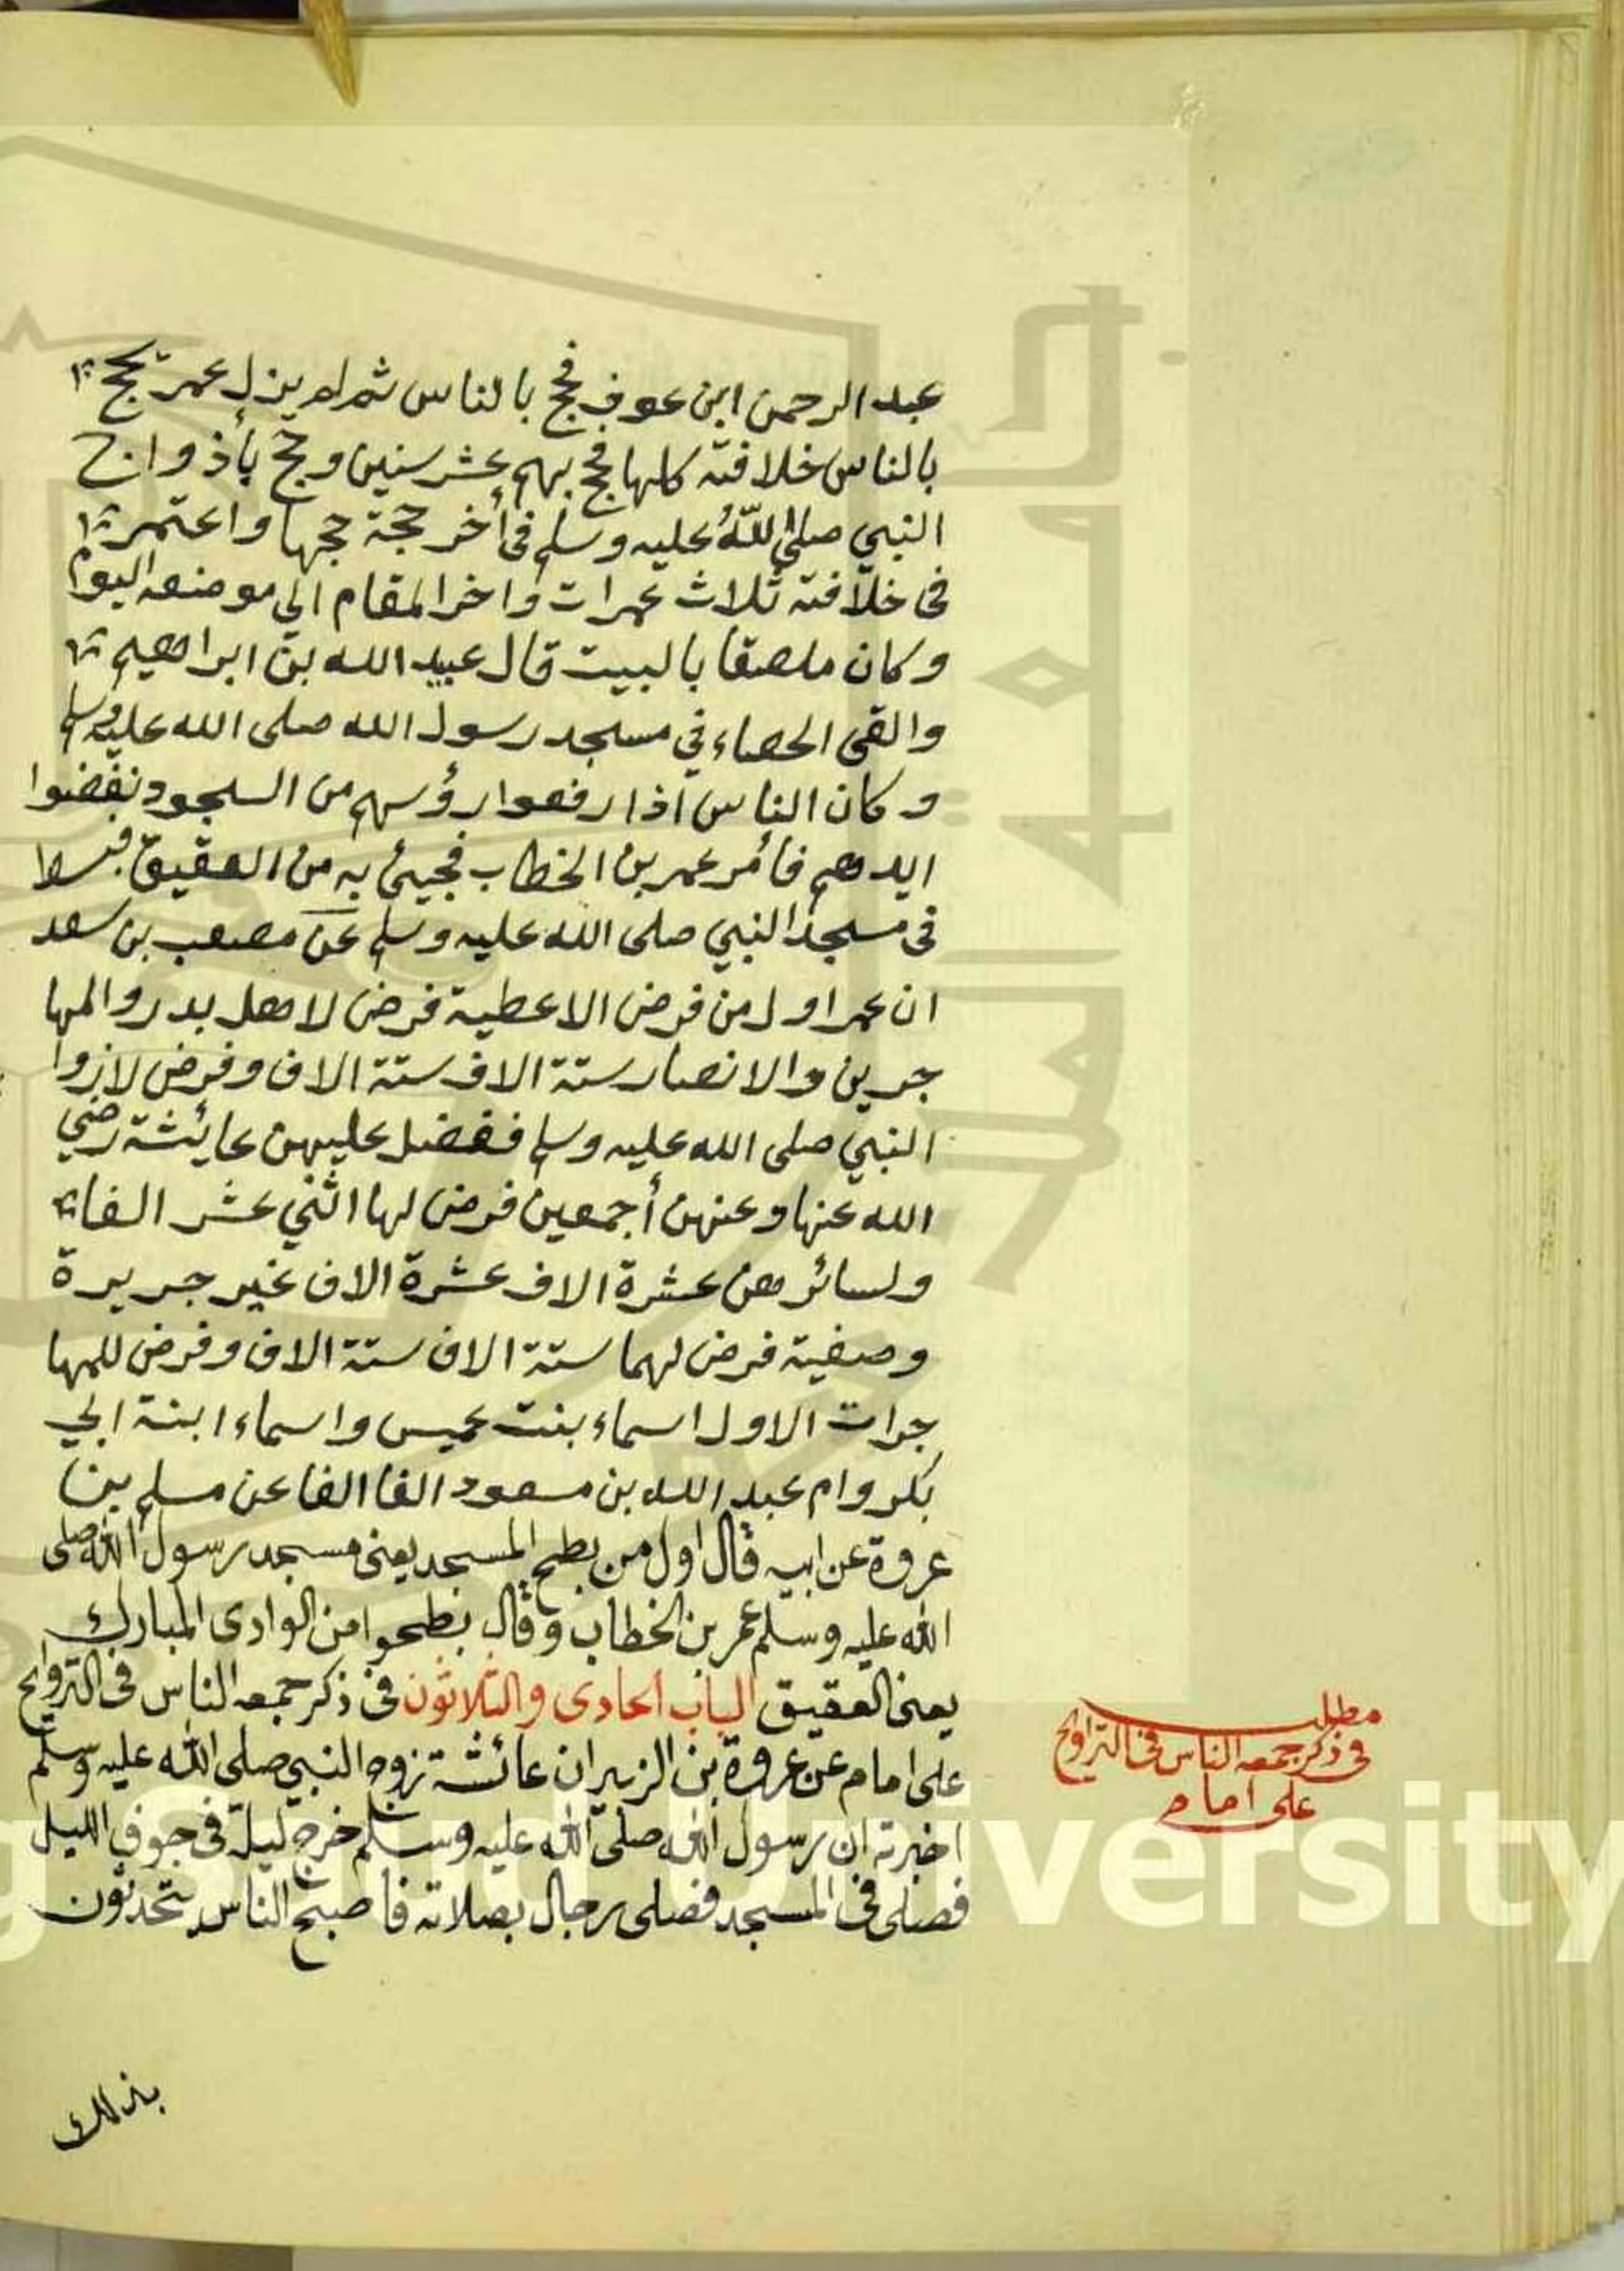 عبد الرحمن ابن عوف فحج بالناس ثم لم يزل عمر يحج
بالناس خلافته كلها فحج بهم عشر سنين وحج بأذواج
النبي صلى اللّٰه عليه وسلم في أخر حجة حجها واعتمر
في خلافته ثلاث عمرات واخر المقام الى موضعه اليوم
وكان ملصقا بالبيت قال عبيد الله بن ابراهيم
والقى الحصاء في مسجد رسول الله صلى الله عليه وسلم
وكان الناس اذا رفعوا رؤسهم من السجود نفضوا
ايدهم فأمر عمر بن الخطاب فجيئ به من العقيق فبسط
في مسجد النبي صلى الله عليه وسلم عن مصعب بن سعد
ان عمر اول من فرض الاعطية فرض لاهل بدر والمها
جرين والانصار ستة الاف ستة الاف وفرض لازوا
النبي صلى الله عليه وسلم ففضل عليهن عايئشة رضي
الله عنها وعنهن أجمعين فرض لها اثني عشر الفا
ولسائرهن عشرة الاف عشرة الاف غير جريرة
وصفية فرض لهما ستة الاف ستة الاف وفرض للمها
جرات الاول اسماء بنت عميس واسماء ابنة ابي
بكر وام عبد الله بن مسعود الفا الفا عن مسلم بن
عروة عن ابيه قال اول من بطح المسجد يعنى مسجد رسول الله صلى
الله عليه وسلم عمر بن الخطاب وقال بطحوا من الوادى المبارك
يعنى العقيق الباب الحادى والثلاثون فى ذكر جمعه الناس فى التروايح
على امام عن عروة بن الزبير ان عائشة زوج النبي صلى الله عليه وسلم
اخبرته ان رسول الله صلى الله عليه وسلم خرج ليلة فى جوف الليل
فصلى فى المسجد فصلى رجال بصلاته فأصبح الناس يتحدثون
بذلك
مطلب
فى ذكر جمعه الناس فى التراويح
على امام
University